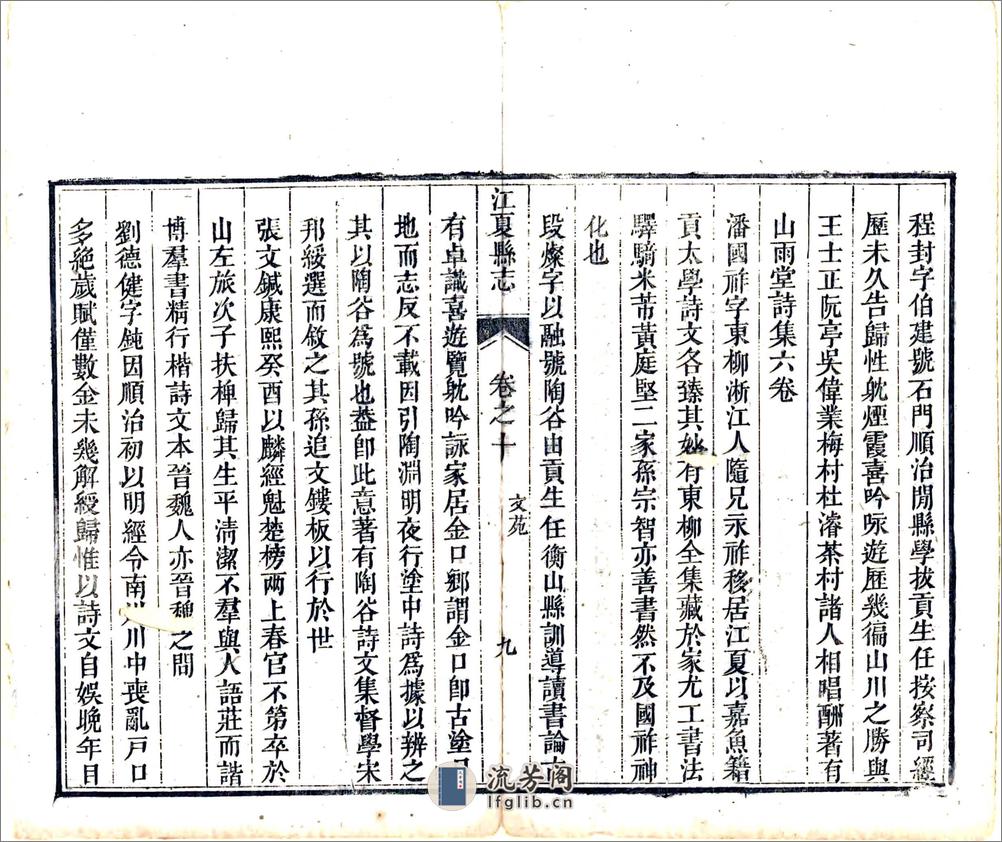 程封字伯建號石門順治間縣學拔貢生任按察司經
歷未久告歸性躭煙霞喜吟咏遊歷幾徧山川之勝與
王士正阮亭吳偉業梅村杜濬茶村諸人相唱酬著有
山雨堂詩集六卷
潘國祚字東柳淅江人隨兄永祚移居江夏以嘉魚籍
貢太學詩文各臻其妙有東柳全集藏於家尤工書法
驛騎米芾黃庭堅二家孫宗智亦善書然不及國祚神
化也
段燦字以融號陶谷由貢生任衡山縣訓導讀書論
江夏縣志
卷之十
文苑
九
有卓識喜遊覽躭吟詠家居金口鄉謂金口卽古塗口
地而志反不載因引陶淵明夜行塗中詩爲據以辨之
其以陶谷爲號也葢卽此意著有陶谷詩文集督學宋
邦綏選而敘之其孫追文鏤板以行於世
張文鋮康熙癸酉以麟經魁楚榜兩上春官不第卒於
山左旅次子扶櫬歸其生平清潔不羣與人語莊而諧
博羣書精行楷詩文本晉魏人亦晉魏之間
劉德健字鈍因順治初以明經令南川川中喪亂戸口
多絶歲賦僅數金未幾解綬歸惟以詩文自娛晚年目
流芳阁
lfglib.cn